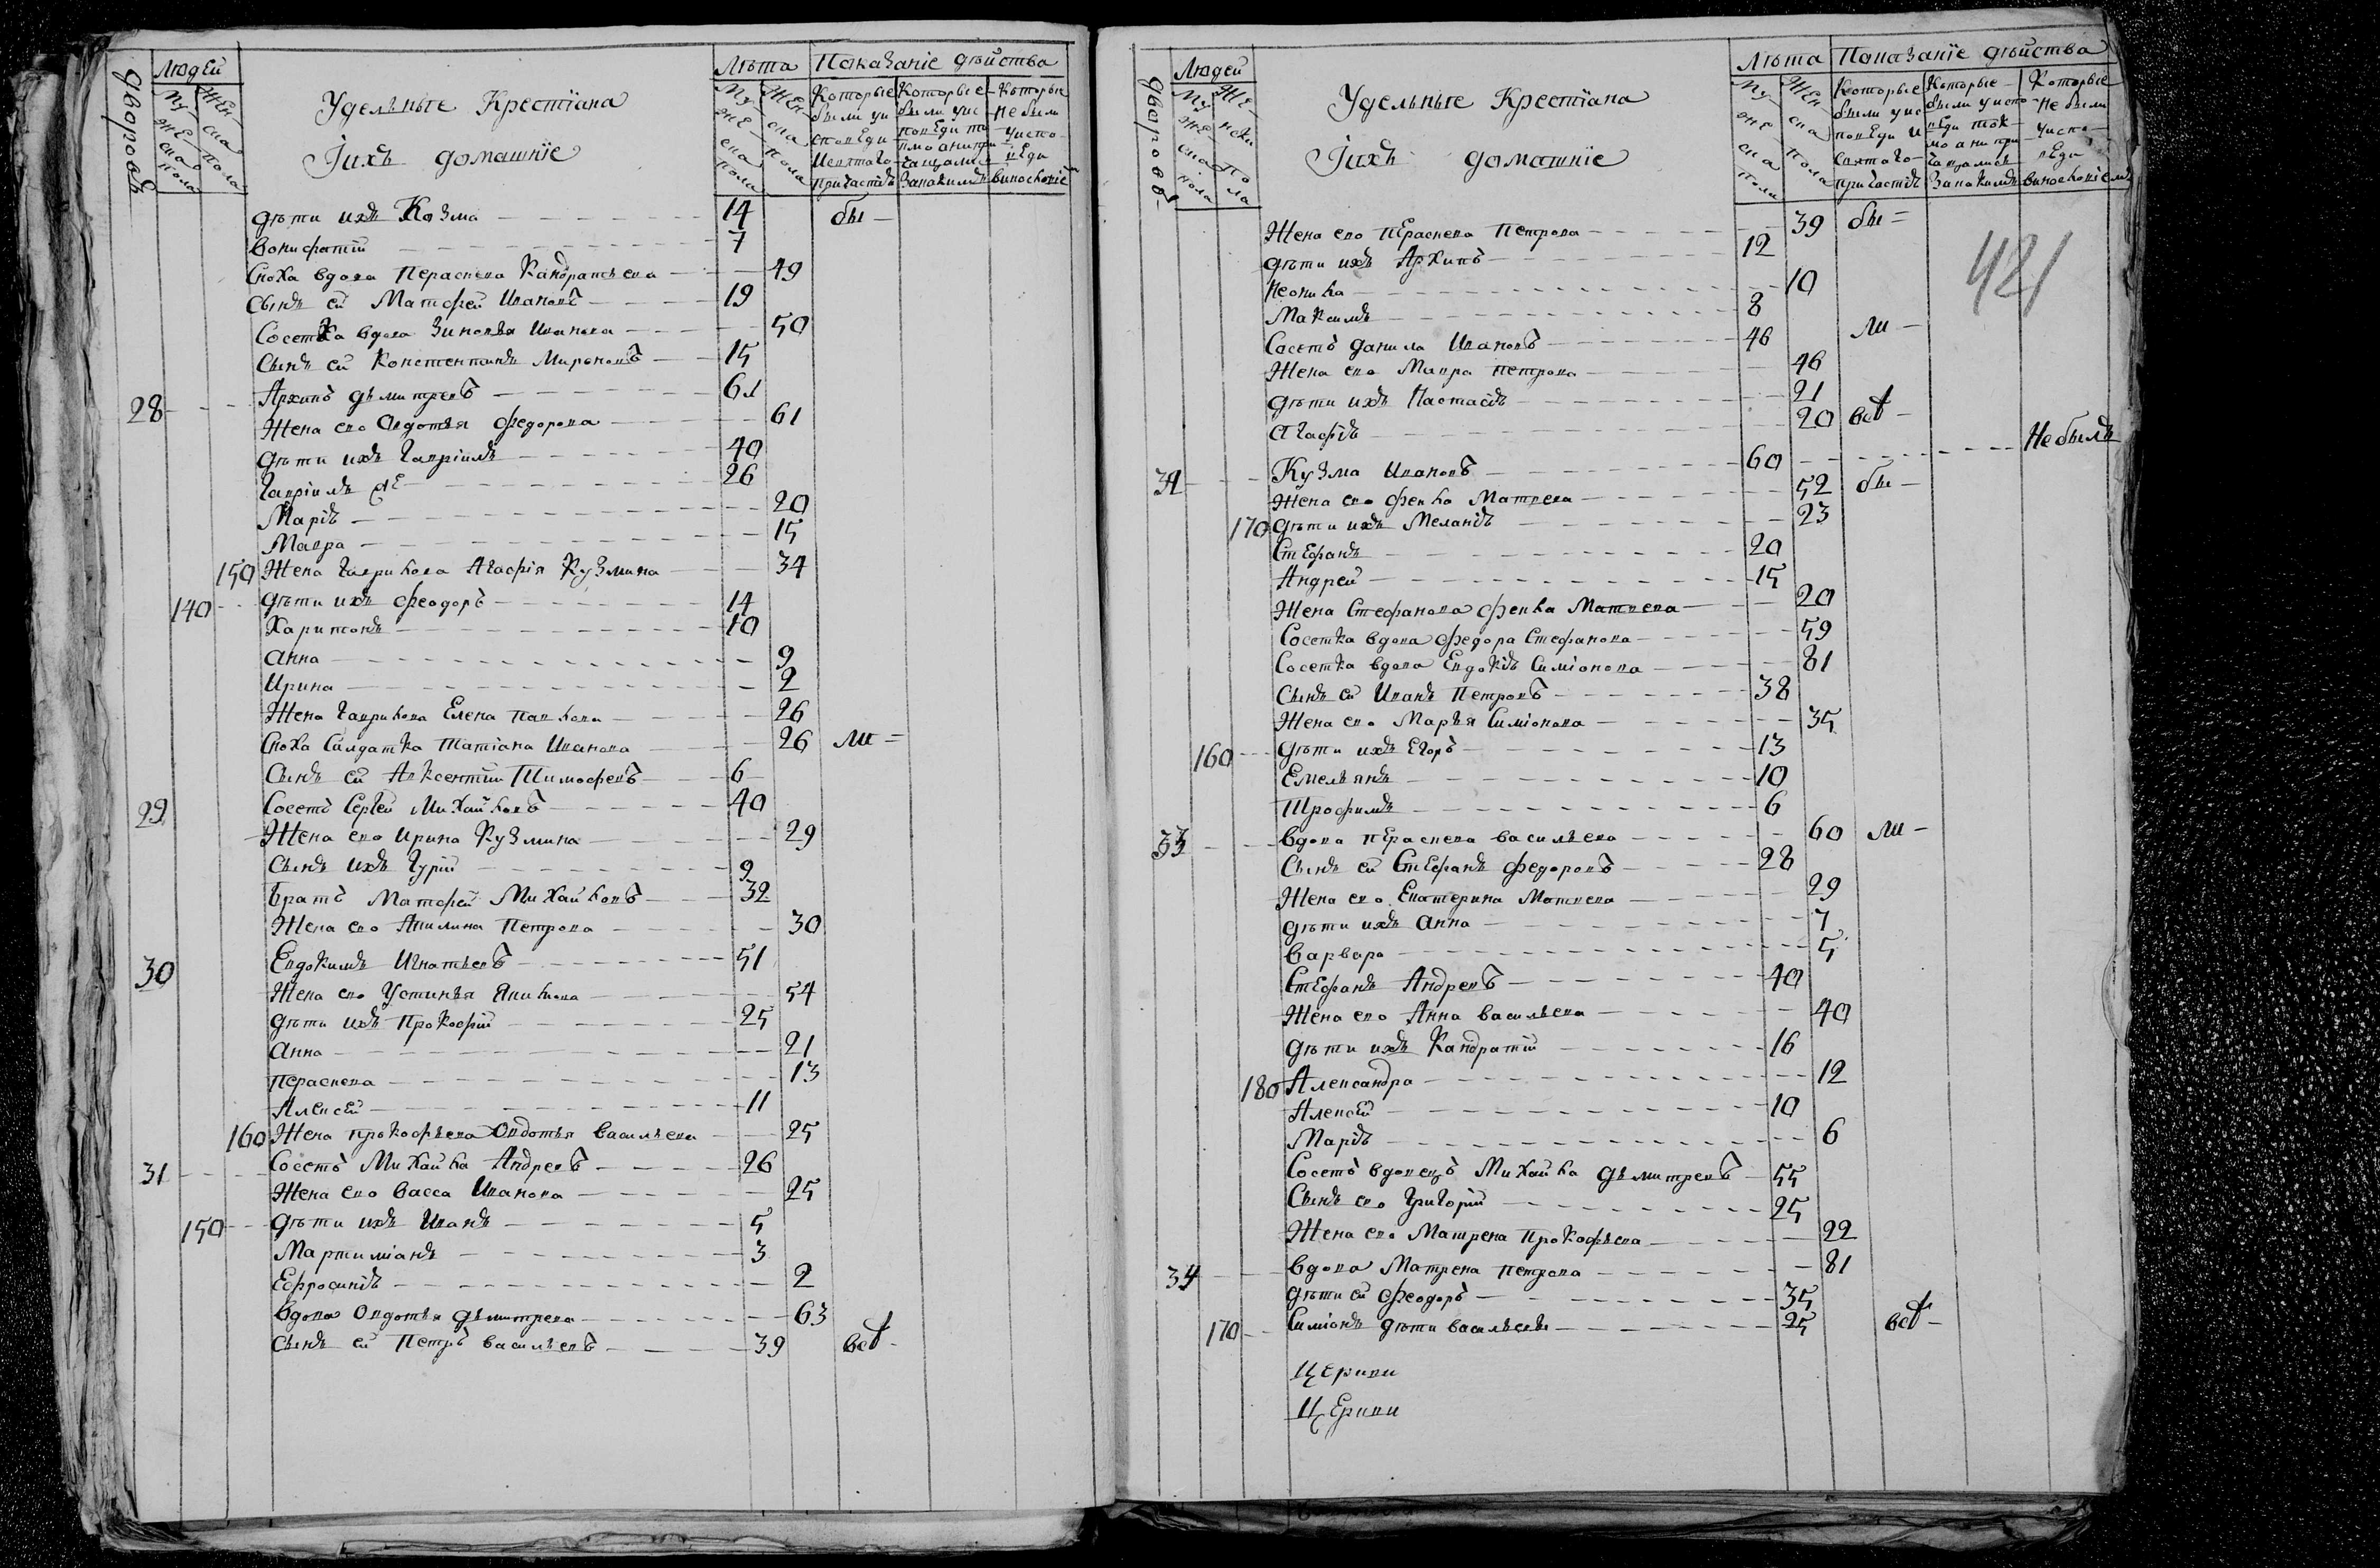 дваровъ
Людей
Мужеска пола
Женска пола
Удельные Крестїана
Iихъ домашнїе
Лѣта
Мужеска пола
Женска пола
Показанїе дѣйства
Которые были уисповеди исвятаго причастїѧ
Которые были уисповеди токмо анипричащались Запокимъ
Которые небыли уисповеди виноскопїе
дѣти ихъ Козма 14 бы
Вонифатїй 7
Сноха вдова Пераскева Кандратьева 49
Сынъ ей Матфей Ивановъ 19
Сосетка вдова Зиновья Иванова 50
Сынъ ей Констентинъ Мироновъ 15
28 Архипъ дьмитревъ 61
Жена ево Овдотья Федорова 61
дѣти ихъ Гавріилъ 40
Гавріилъ же 26
Маріѧ 20
Мавра 15
150 Жена Гаврилова Агафїя Кузмина 34
140 дѣти ихъ Феодоръ 14
Харитонъ 10
Анна 9
Ирина 2
Жена Гаврилова Елена Павлова 26
Сноха Салдатка Татїана Иванова 26 ли
Сынъ ей Авксентїй Тимофевъ 6
29 Сосетъ Сергей Михайловъ 40
Жена ево Ирина Кузмина 29
Сынъ ихъ Гурїй 9
Братъ Матфей Михайловъ 32
Жена ево Акилина Петрова 30
30 Евдокимъ Игнатьевъ 51
Жена ево Устинья Якивлева 54
дѣти ихъ Прокофїй 25
Анна 21
Пераскева 13
Алексей 11
160 Жена прокофьева Овдотья Васильева 25
31 Сосетъ Михайла Андревъ 26
Жена ево Васса Иванова 25
150 дѣти ихъ Иванъ 5
Мартимїанъ 3
Ефросинїѧ 2
Вдова Овдотья дьмитрева 63
Сынъ ей Петръ Васильевъ 39 всѣ
дваровъ
Людей
Мужеска пола
Женска пола
Удельные Крестїана
Iихъ домашнїе
Лѣта
Мужеска пола
Женска пола
Показанїе дѣйства
Которые были уисповеди исвятаго причастїѧ
Которые были уисповеди токмо анипричащались Запокимъ
Которые небыли уисповеди
421
Жена ево Пераскева Петрова 39 бы
дѣти ихъ Архипъ 12
Неонила 10
Максимъ 8
Сосетъ данила Ивановъ 46 ли
Жена ево Мавра петрова 46
дѣти ихъ Настасїѧ 21
Агафїѧ 20 всѣ
32 Кузма Ивановъ 60 Небылъ
Жена ево Фекла Матвева 52 бы
170 дѣти ихъ Меланїѧ 23
Стефанъ 20
Андрей 15
Жена Стефанова Фекла Матвева 20
Сосетка вдова Федора Стефанова 59
Сосетка вдова Евдокїѧ Симїонова 81
Сынъ ей Иванъ Петровъ 38
Жена ево Марья Симїонова 35
160 дѣти ихъ Егоръ 13
Емельянъ 10
Трофимъ 6
33 Вдова Пераскева Васильева 60 ли
Сынъ ей Стефанъ Федоровъ 28
Жена ево Екатерина Матвева 29
дѣти ихъ Анна 7
Варвара 5
Стефанъ Андревъ 40
Жена ево Анна Васильева 40
дѣти ихъ Кандратїй 16
180 Александра 12
Алексей 10
Маріѧ 6
Сосетъ вдовецъ Михайла дьмитревъ 55
Сынъ ево Григорїй 25
Жена ево Матрена Прокофьева 22
34 Вдова Матрена петрова 81
дѣти ей Феодоръ 35
170 Симїонъ дѣти васильевы 25 всѣ
Церкви
Церкви